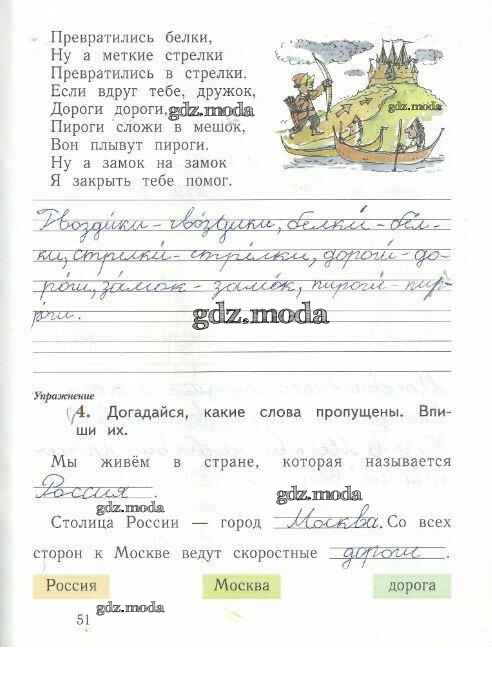 Превратились белки,
Ну а меткие стрелки
Превратились в стрелки.
Если вдруг тебе, дружок,
Дороги дороги,
gdz.moda
gdz.moda
Пироги сложи в мешок,
Вон плывут пироги.
Ну а замок на замок
Я закрыть тебе помог.
Гвозди́ки - гво́здики, белки́ - бе́л-
ки, стрелки́ - стре́лки, дороги́ - до-
ро́ги, за́мок - замо́к, пироги́ - пи-
ро́ги.
gdz.moda
Упражнение
4. Догадайся, какие слова пропущены. Впи-
ши их.
Мы живём в стране, которая называется
Россия .
gdz.moda
gdz.moda
Столица России — город Москва. Со всех
сторон к Москве ведут скоростные дороги .
Россия Москва дорога
gdz.moda
51